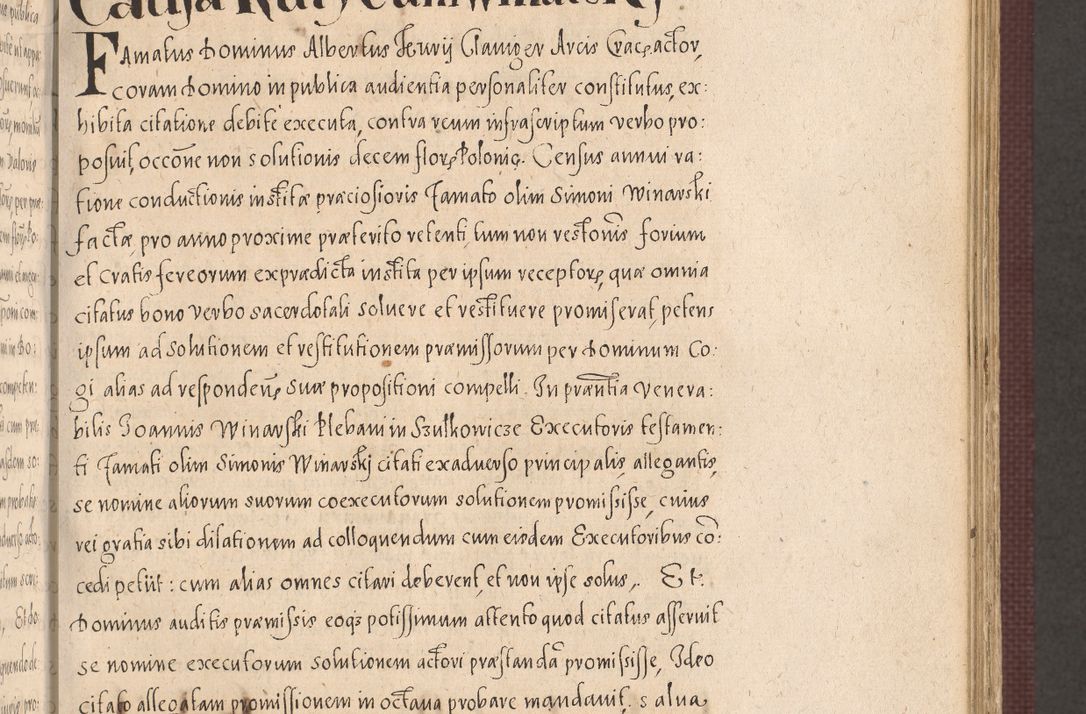 Causa Kurÿ cum Winarsky
Famatus Dominus Albertus Kurij Claviger Arcis Cracę actor,
coram Domino in publica audientia personaliter constitutus, ex:
hibita citatione debite executa, contra reum infrascriptum verbo pro:
posuit, occōne non solutionis decem florę Polonię. Census annui ra:
tione conductionis institæ præciosioris famato olim Simoni Winarski
factæ, pro anno proxime præterito retenti, tum non restonis forium
et Cratis ferreorum ex prædicta instita per ipsum receptorę, quæ omnia
citatus bono verbo sacerdotali solvere et restituere promiserat, petens
ipsum ad solutionem et restitutionem præmissorum per Dominum Co:
gi alias ad respondenę suæ propositioni compelli. In præntia Venera:
bilis Joannis Winarski Plebani in Szulkowicze Executoris testamen:
ti famati olim Simonis Winarskj citati ex adverso principalis, allegantis,
se nomine aliorum suorum coexecutorum solutionem promisisse, cuius
rei gratia sibi dilationem ad colloquendum cum eisdem Executoribus cō:
cedi petiit: cum alias omnes citari deberent, et non ipse solus,. Et
Dominus auditis præmissis eoqȝ potissimum attento quod citatus asseruit
se nomine executorum solutionem actori præstandā promisisse, Ideo
citato allegatam promissionem in octava probare mandavit, salva